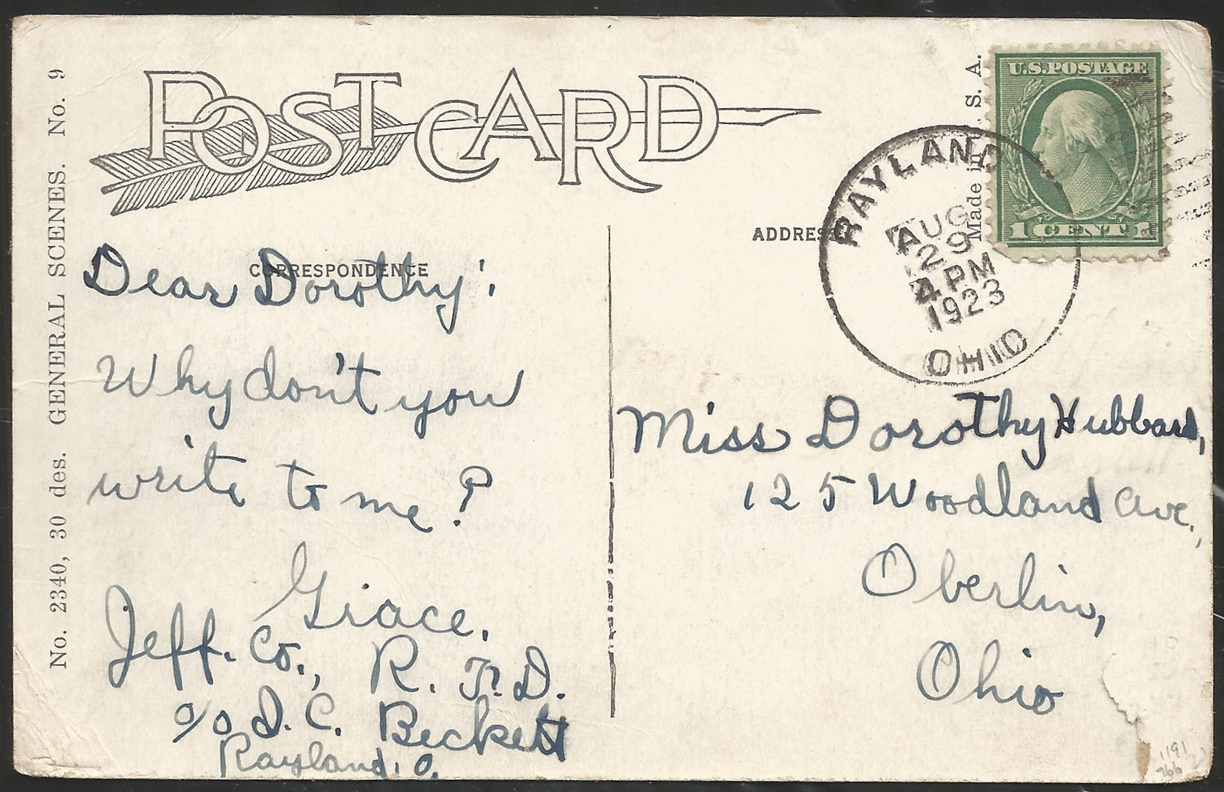 No. 2340, 30 des. GENERAL SCENES. No. 9
POST CARD
Made in S. A.
U.S. POSTAGE
1 CENT 1
RAYLAND
AUG
29
4 PM
1923
OHIO
CORRESPONDENCE
ADDRESS
Dear Dorothy:
Why don't you
write to me?
Grace.
Jeff. Co., R. F. D.
c/o D. C. Beckett
Rayland, O.
Miss Dorothy Hubbard,
125 Woodland Ave.,
Oberlin,
Ohio
1191